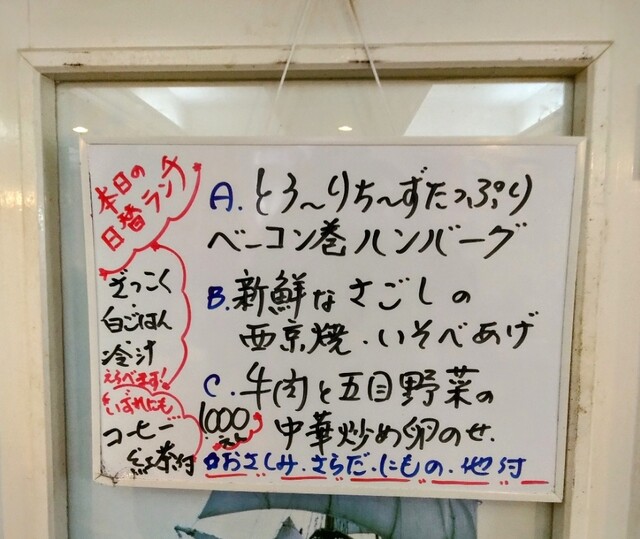 本日の
日替ランチ
A. とろ〜りち〜ずたっぷり
ベーコン巻ハンバーグ
B. 新鮮なさごしの
西京焼・いそべあげ
C. 牛肉と五目野菜の
中華炒め卵のせ.
ぞっこく
白ごはん
冷汁
えらべます!
いずれにも…
コーヒー
紅茶付
1000
えん
おさしみ・さらだ・にもの・他付